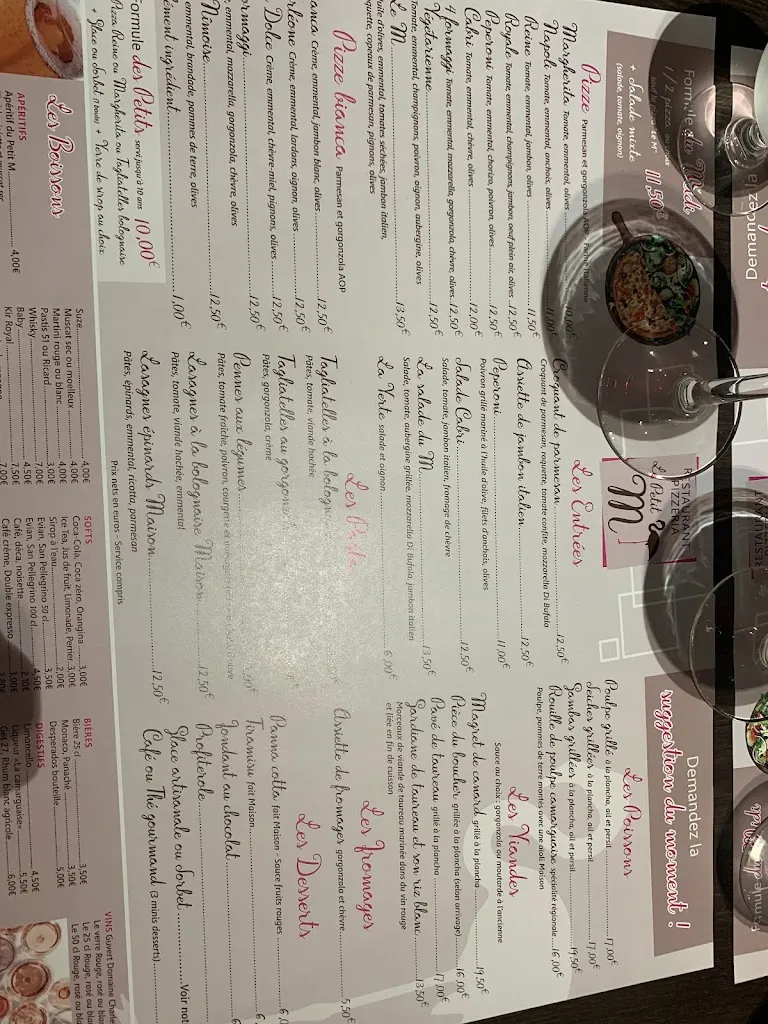 Formule du Midi
1/2 pizza
+ Salade mixte 11,50€
(salade, tomate, oignon)
Pizze Parmesan et gorgonzola AOP
Margherita Tomate, emmental, olives 10,00€
Napoli Tomate, emmental, anchois, olives 11,00€
Reine Tomate, emmental, jambon, olives 11,50€
Royale Tomate, emmental, champignons, jambon, oeuf plein air, olives 12,50€
Peperoni Tomate, emmental, chorizo, poivron, olives 12,50€
Cabri Tomate, emmental, chèvre, olives 12,00€
4 formaggi Tomate, emmental, mozzarella, gorgonzola, chèvre, olives 12,50€
Végétarienne
Tomate, emmental, champignons, poivron, oignon, aubergine, olives 12,50€
Le M 13,50€
huile d'olives, emmental, tomates séchées, jambon italien,
roquette, copeaux de parmesan, pignons, olives
Pizze bianca Parmesan et gorgonzola AOP
anca Crème, emmental, jambon blanc, olives 12,50€
rléone Crème, emmental, lardons, oignon, olives 12,50€
Dolce Crème, emmental, chèvre-miel, pignons, olives 12,50€
rmaggi 12,50€
, emmental, mozzarella, gorgonzola, chèvre, olives
Nimoise 12,50€
emmental, brandade, pommes de terre, olives
ément ingrédient 1,00€
Formule des Petits servi jusqu'à 10 ans 10,00€
Pizza Reine ou Margherita ou Tagliatelles bolognaise
+ Glace ou sorbet (1 boule) + Verre de sirop au choix
RESTAURANT
PIZZERIA
Le Petit
M
Les Entrées
Croquant de parmesan 12,50€
Croquant de parmesan, roquette, tomate confite, mozzarella Di Bufala
Assiette de jambon italien 12,50€
Peperoni 11,00€
Poivron grillé mariné à l'huile d'olive, filets d'anchois, olives
Salade Cabri 12,50€
Salade, tomate, jambon italien, fromage de chèvre
La salade du M 13,50€
Salade, tomate, aubergine grillée, mozzarella Di Bufala, jambon italien
La Verte salade et oignon 6,00€
Les Pasta
Tagliatelles à la bologn
Pâtes, tomate, viande hachée
Tagliatelles au gorgonz
Pâtes, gorgonzola, crème
Pennes aux légumes
Pâtes, tomate fraîche, poivron, courgette et
Lasagnes à la bolognaise Maison 12,50€
Pâtes, tomate, viande hachée, emmental
Lasagnes épinards Maison 12,50€
Pâtes, épinards, emmental, ricotta, parmesan
Prix nets en euros - Service compris
Demandez la
suggestion du moment !
Les Poissons
Poulpe grillé à la plancha, ail et persil 17,00€
Seiches grillées à la plancha, ail et persil 17,00€
Gambas grillées à la plancha, ail et persil 19,50€
Rouille de poulpe camarguaise spécialité régionale 16,00€
Poulpe, pommes de terre montés avec une aïoli Maison
Les Viandes
Sauce au choix : gorgonzola ou moutarde à l'ancienne
Magret de canard grillé à la plancha 19,50€
Pièce du boucher grillée à la plancha (selon arrivage) 16,00€
Pavé de taureau grillé à la plancha 17,00€
Gardiane de taureau et son riz blanc 13,50€
Morceaux de viande de taureau marinée dans du vin rouge
et liée en fin de cuisson
Les fromages
Assiette de fromages gorgonzola et chèvre 5,50€
Les Desserts
Panna cotta fait Maison - Sauce fruits rouges
Tiramisu fait Maison
Fondant au chocolat
Profiterole
Glace artisanale ou sorbet Voir not
Café ou Thé gourmand (3 minis desserts)
Les Boissons
APÉRITIFS
Apéritif du Petit M 4,00€
Suze 4,00€
Muscat sec ou moelleux 4,00€
Martini rouge ou blanc 4,00€
Pastis 51 ou Ricard 3,00€
Whisky 7,00€
Baby 4,50€
Kir Royal 7,50€
SOFTS
Coca-Cola, Coca zéro, Orangina 3,00€
Ice Tea, Jus de fruit, Limonade, Perrier 3,00€
Sirop à l'eau 2,00€
Evian, San Pellegrino 50 cl 3,50€
Evian, San Pellegrino 100 cl 4,50€
Café, déca, noisette
Café crème, Double expresso
BIÈRES
Bière 25 cl 3,50€
Monaco, Panaché 3,50€
Desperados bouteille 5,00€
DIGESTIFS
Limoncello 4,50€
Liqueur «La camarguaise» 5,50€
Get 27, Rhum blanc agricole 6,00€
VINS Guivert Domaine Charle
Le verre Rouge, rosé ou blan
Le 25 cl Rouge, rosé ou blan
Le 50 cl Rouge, rosé ou bla